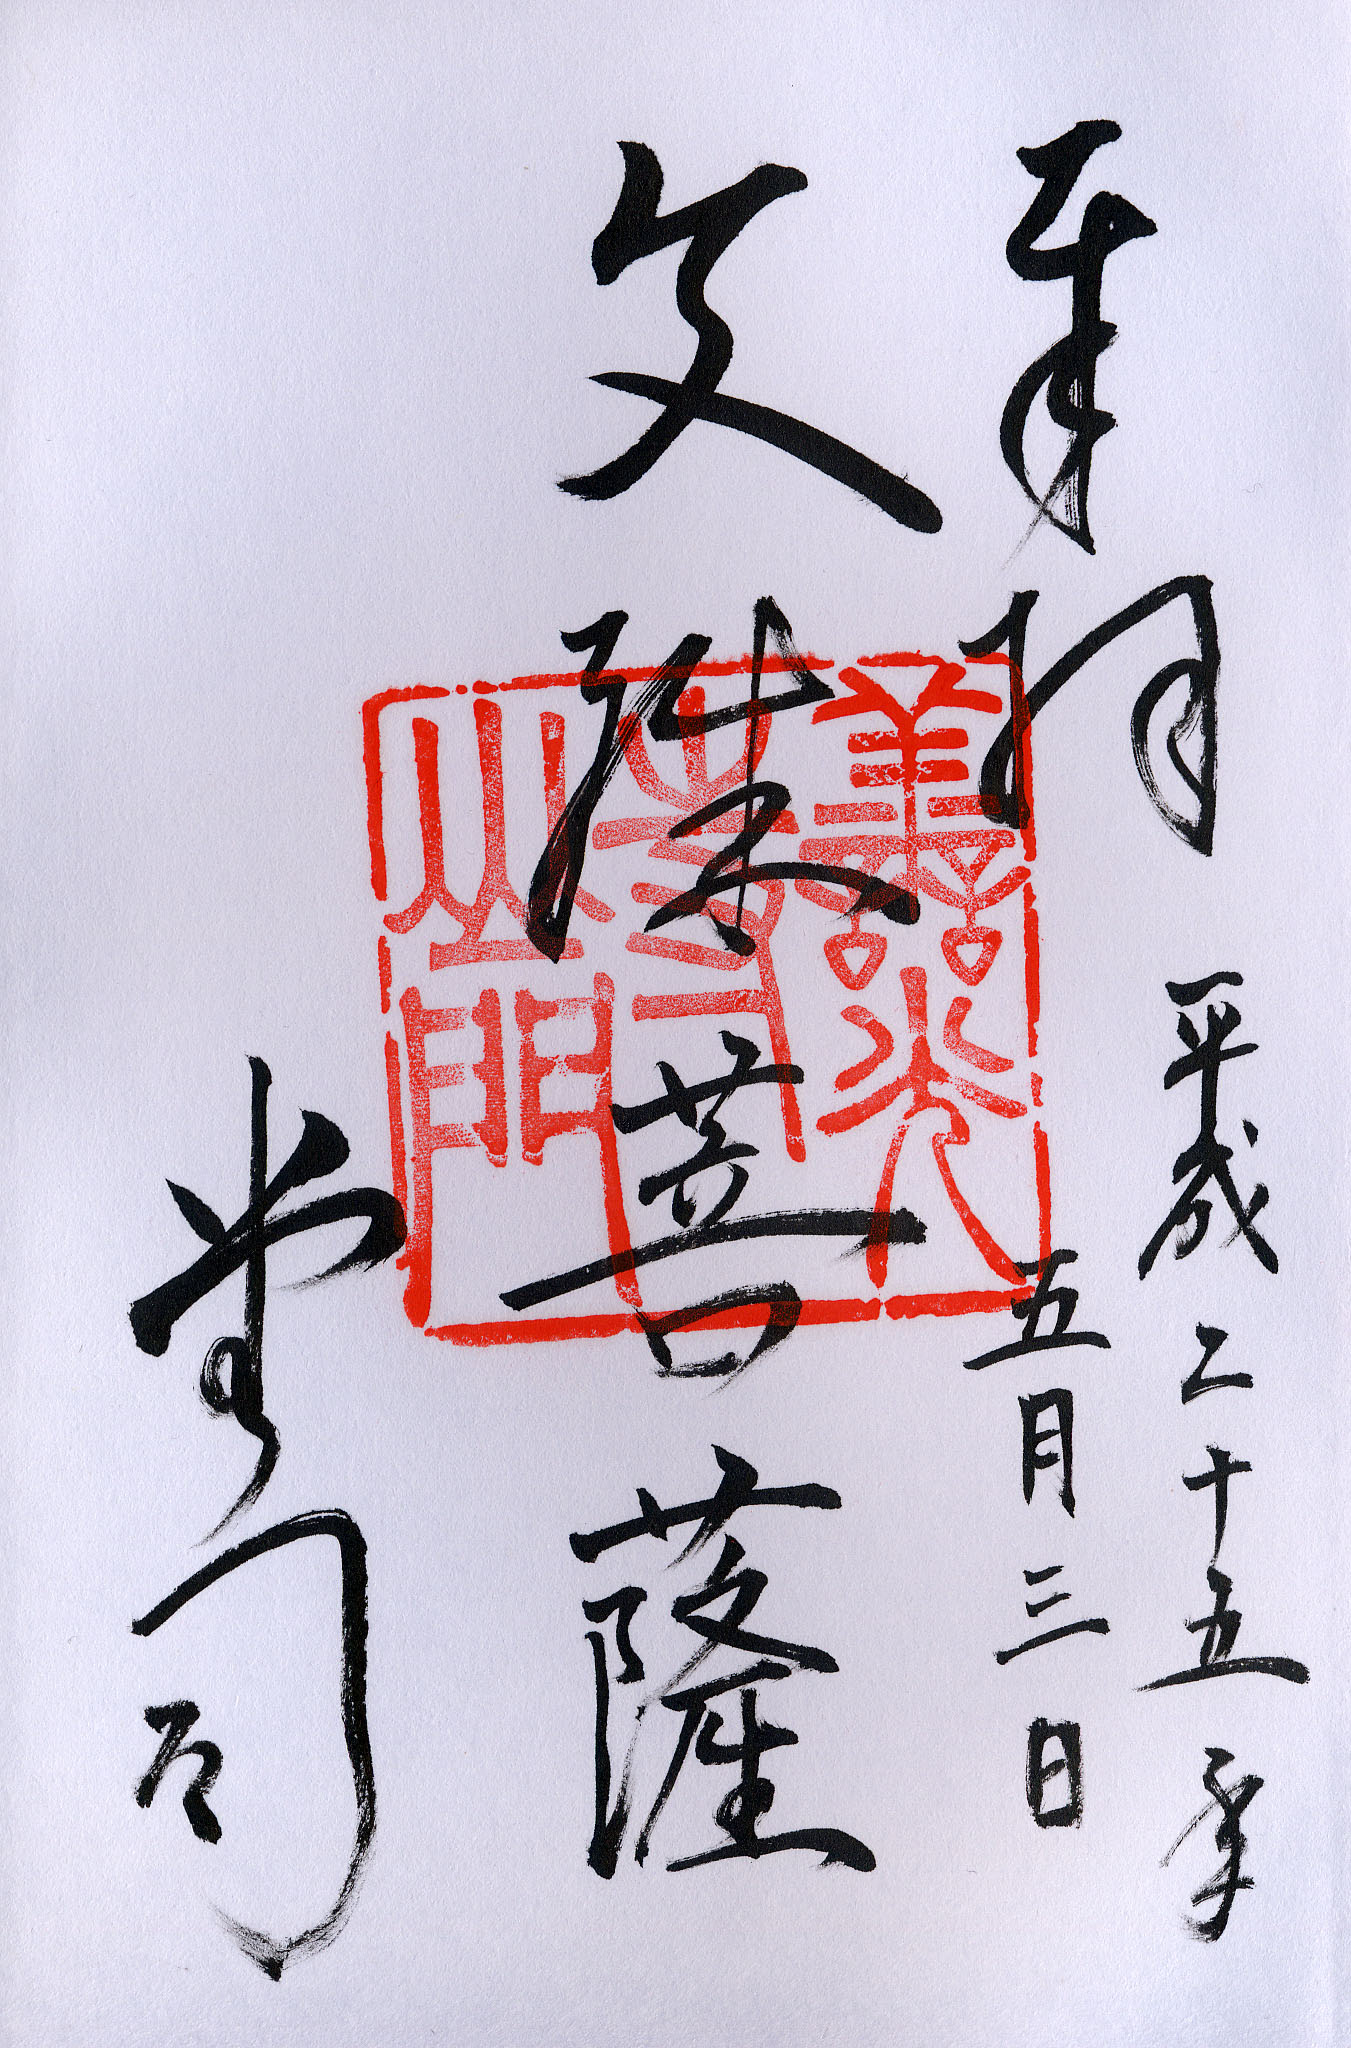 奉拝
平成二十五年
五月三日
文殊菩薩
善光
寺
山門
堂司